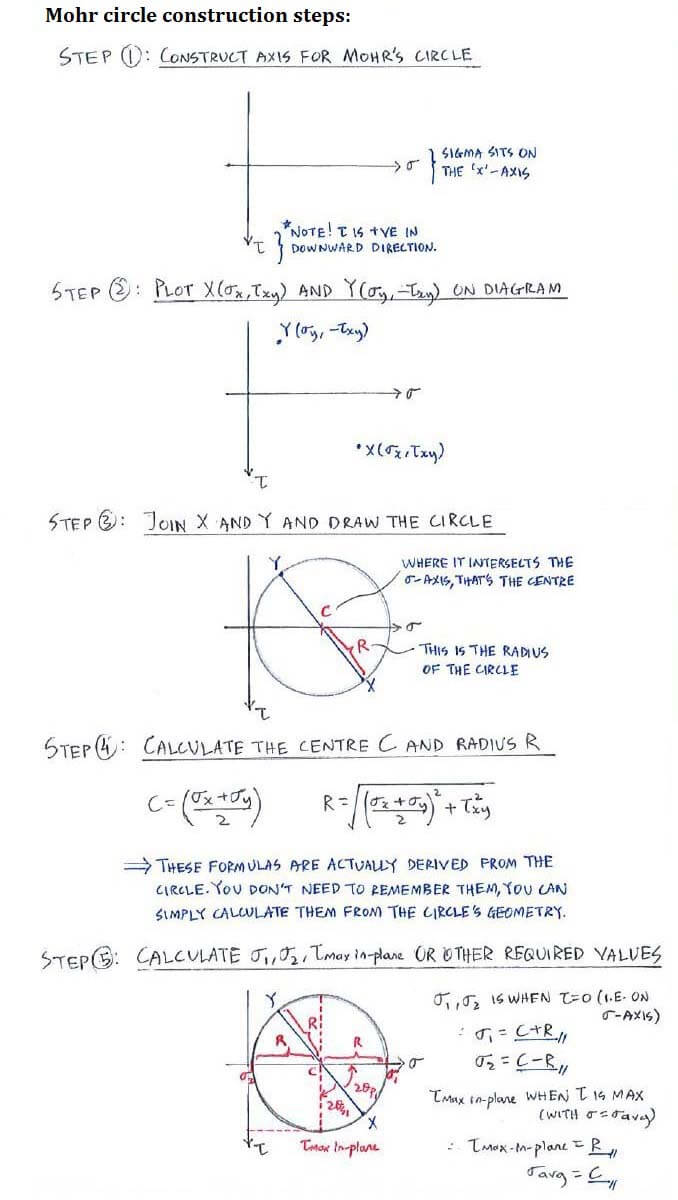 Mohr circle construction steps:
STEP ①: CONSTRUCT AXIS FOR MOHR'S CIRCLE
σ } SIGMA SITS ON
THE 'X'-AXIS
τ } *NOTE! τ IS +VE IN
DOWNWARD DIRECTION.
STEP ②: PLOT X(σx, τxy) AND Y(σy, -τxy) ON DIAGRAM
Y(σy, -τxy)
σ
X(σx, τxy)
τ
STEP ③: JOIN X AND Y AND DRAW THE CIRCLE
Y
WHERE IT INTERSECTS THE
σ-AXIS, THAT'S THE CENTRE
C
σ
R
THIS IS THE RADIUS
OF THE CIRCLE
X
τ
STEP ④: CALCULATE THE CENTRE C AND RADIUS R
C = ((σx + σy)/2) R = √(((σx + σy)/2)² + τ²xy)
⇒ THESE FORMULAS ARE ACTUALLY DERIVED FROM THE
CIRCLE. YOU DON'T NEED TO REMEMBER THEM, YOU CAN
SIMPLY CALCULATE THEM FROM THE CIRCLE'S GEOMETRY.
STEP ⑤: CALCULATE σ1, σ2, τmax in-plane OR OTHER REQUIRED VALUES
Y
R
R R
σ2 C σ1 σ
2θp1
2θs1
X
τ
τmax in-plane
σ1, σ2 IS WHEN τ=0 (I.E. ON
σ-AXIS)
∴ σ1 = C+R
σ2 = C-R
τmax in-plane WHEN τ IS MAX
(WITH σ=σavg)
∴ τmax-in-plane = R
σavg = C